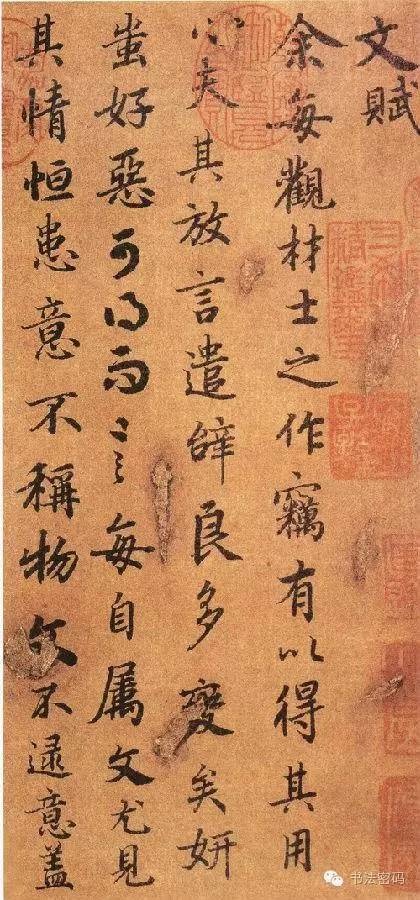 文賦
余每觀材士之作竊有以得其用
心夫其放言遣辭良多變矣妍
蚩好惡可得而言每自屬文尤見
其情恒患意不稱物文不逮意蓋
三希堂精鑑璽
宜子孫
书法密码